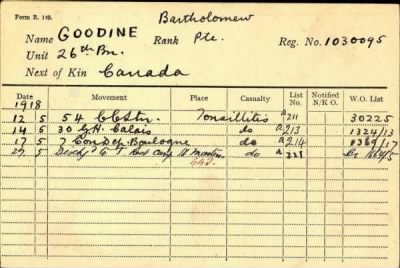 Form R. 149.
Bartholomew
Name GOODINE Rank Pte. Reg. No. 1030095
Unit 26th Bn.
Next of Kin Canada
Date Movement Place Casualty List No. Notified N/K.O. W.O. List
1918
12 5 54 CCStn. Tonsillitis a211 30225
14 5 30 G.H. Calais do a213 1324/13
17 5 7 Con Dep. Boulogne do a214 1369/17
5 Disch to Rest Camp St Martins do a221